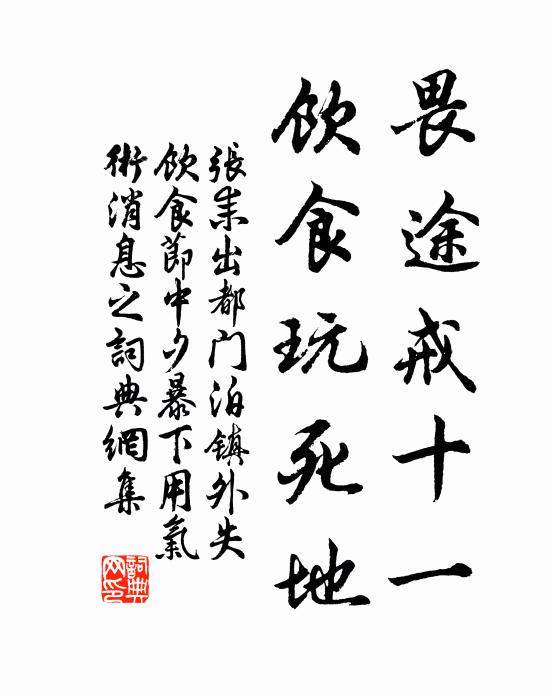 畏途戒十一
飲食玩死地
張耒出都門泊鎮外失
飲食節中夕暴下用氣
術消息之詞典網集
詞典网印